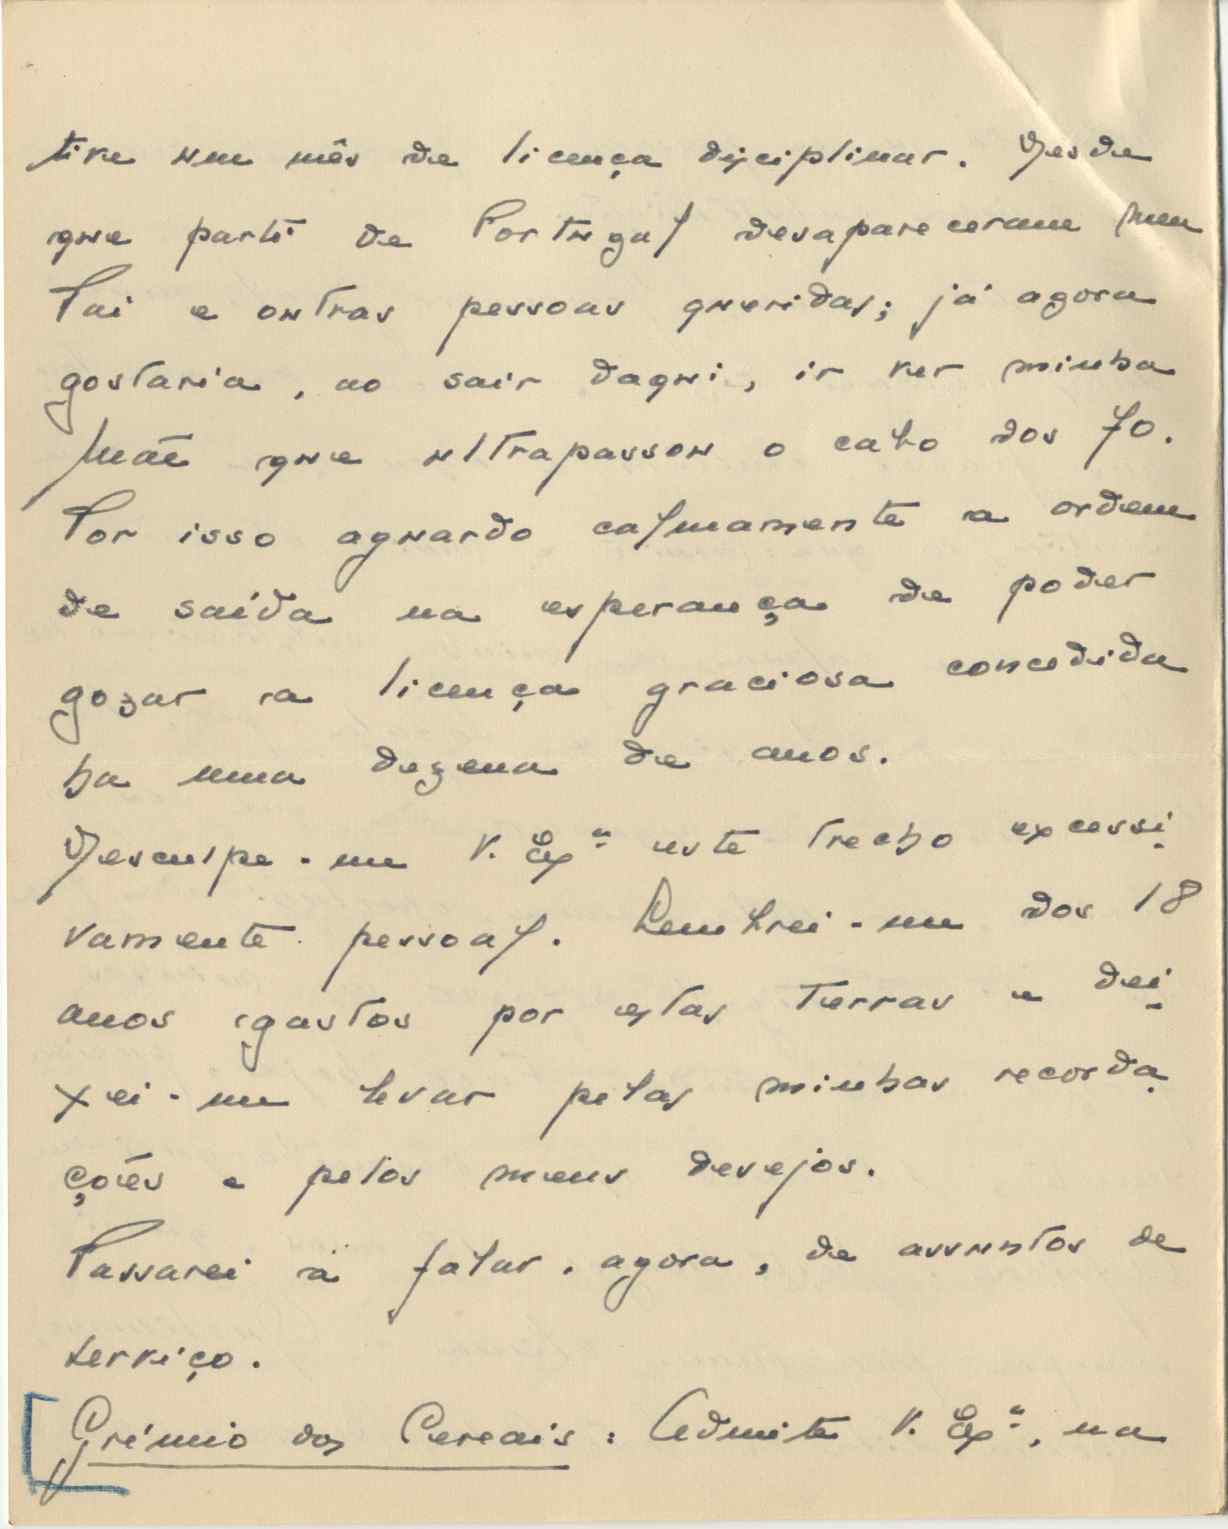 tive um mês de licença disciplinar. Desde
que parti de Portugal desapareceram meu
Pai e outras pessoas queridas; já agora
gostaria, ao sair daqui, ir ver minha
Mãe que ultrapassou o cabo dos 70.
Por isso aguardo calmamente a ordem
de saída na esperança de poder
gozar a licença graciosa concedida
ha uma dezena de anos.
Desculpe-me V. Exª este trecho excessi-
vamente pessoal. Lembrei-me dos 18
anos gastos por estas terras e dei-
xei-me levar pelas minhas recorda-
ções e pelos meus desejos.
Passarei a falar, agora, de assuntos de
serviço.
Grémio dos Cereais: Admite V. Exª, na